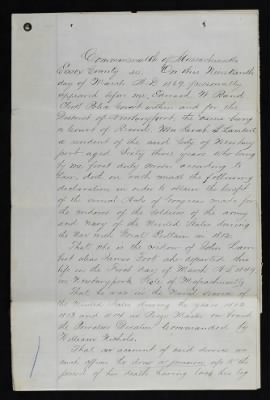 Commonwealth of Massachusetts
Essex County ss. On this Nineteenth
day of March A.D. 1869 personally
appeared before me, Edward W Rand
Clerk Police Court within and for the
District of Newburyport, the same being
a Court of Record, Mrs Sarah S Lambert
a resident of the said City of Newbury
port aged Sixty three years who being
by me first duly sworn according to
Law, doth on oath made the following
declaration in order to obtain the benefit
of the several Acts of Congress made for
the widows of the Soldiers of the army
and Navy of the United States during
the War with Great Britain in 1812.
That she is the widow of John Lam
bert alias Foot who departed this
life on the First day of March A.D. 1849
in Newburyport State of Massachusetts
That he was in the Naval service of
the United States during the years 1812
1813 and 1814 as Prize Master on board
the Privateer Decatur Commanded by
William Nichols.
That on account of said service as
such officer he drew a pension up to the
period of his death having lost his leg